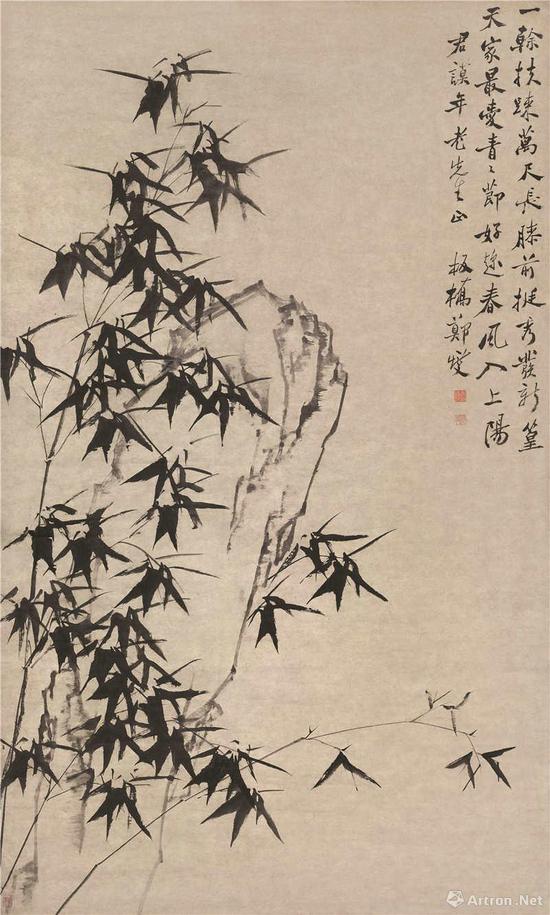 一榦扶踈萬尺長膝前挺秀發新篁
天家最愛青〻節好趂春風入上陽
君謨年老先生正 板橋鄭燮
Artron.Net